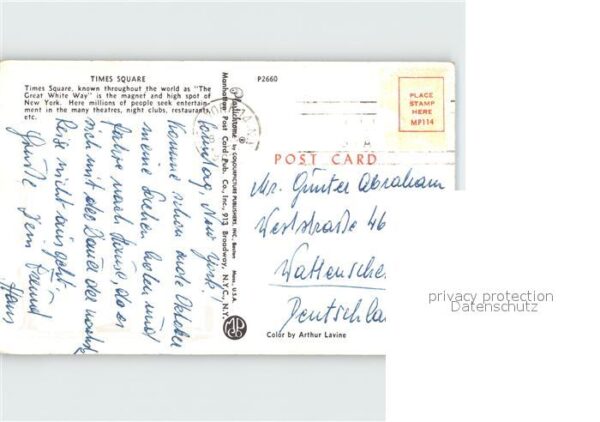 TIMES SQUARE
Times Square, known throughout the world as "The
Great White Way" is the magnet and high spot of
New York. Here millions of people seek entertain-
ment in the many theatres, night clubs, restaurants,
etc.
P2660
PLACE
STAMP
HERE
MP114
POST CARD
Plastichrome ® by COLOURPICTURE PUBLISHERS, INC., Boston Mass. U.S.A.
Manhattan Post Card Pub. Co., Inc., 913 Broadway, N.Y.C., N.Y.
Sonntag, New York.
Komme schon Ende Oktober
meine Sachen holen und
fahre nach Hause, da es
sich mit der Dauer der
Reise nicht ausgeht.
Grüße Dein Freund
Hans
Mr. Günter Abraham
Weststraße 46
Wattensche
Deutschla
Color by Arthur Lavine
privacy protection
Datenschutz